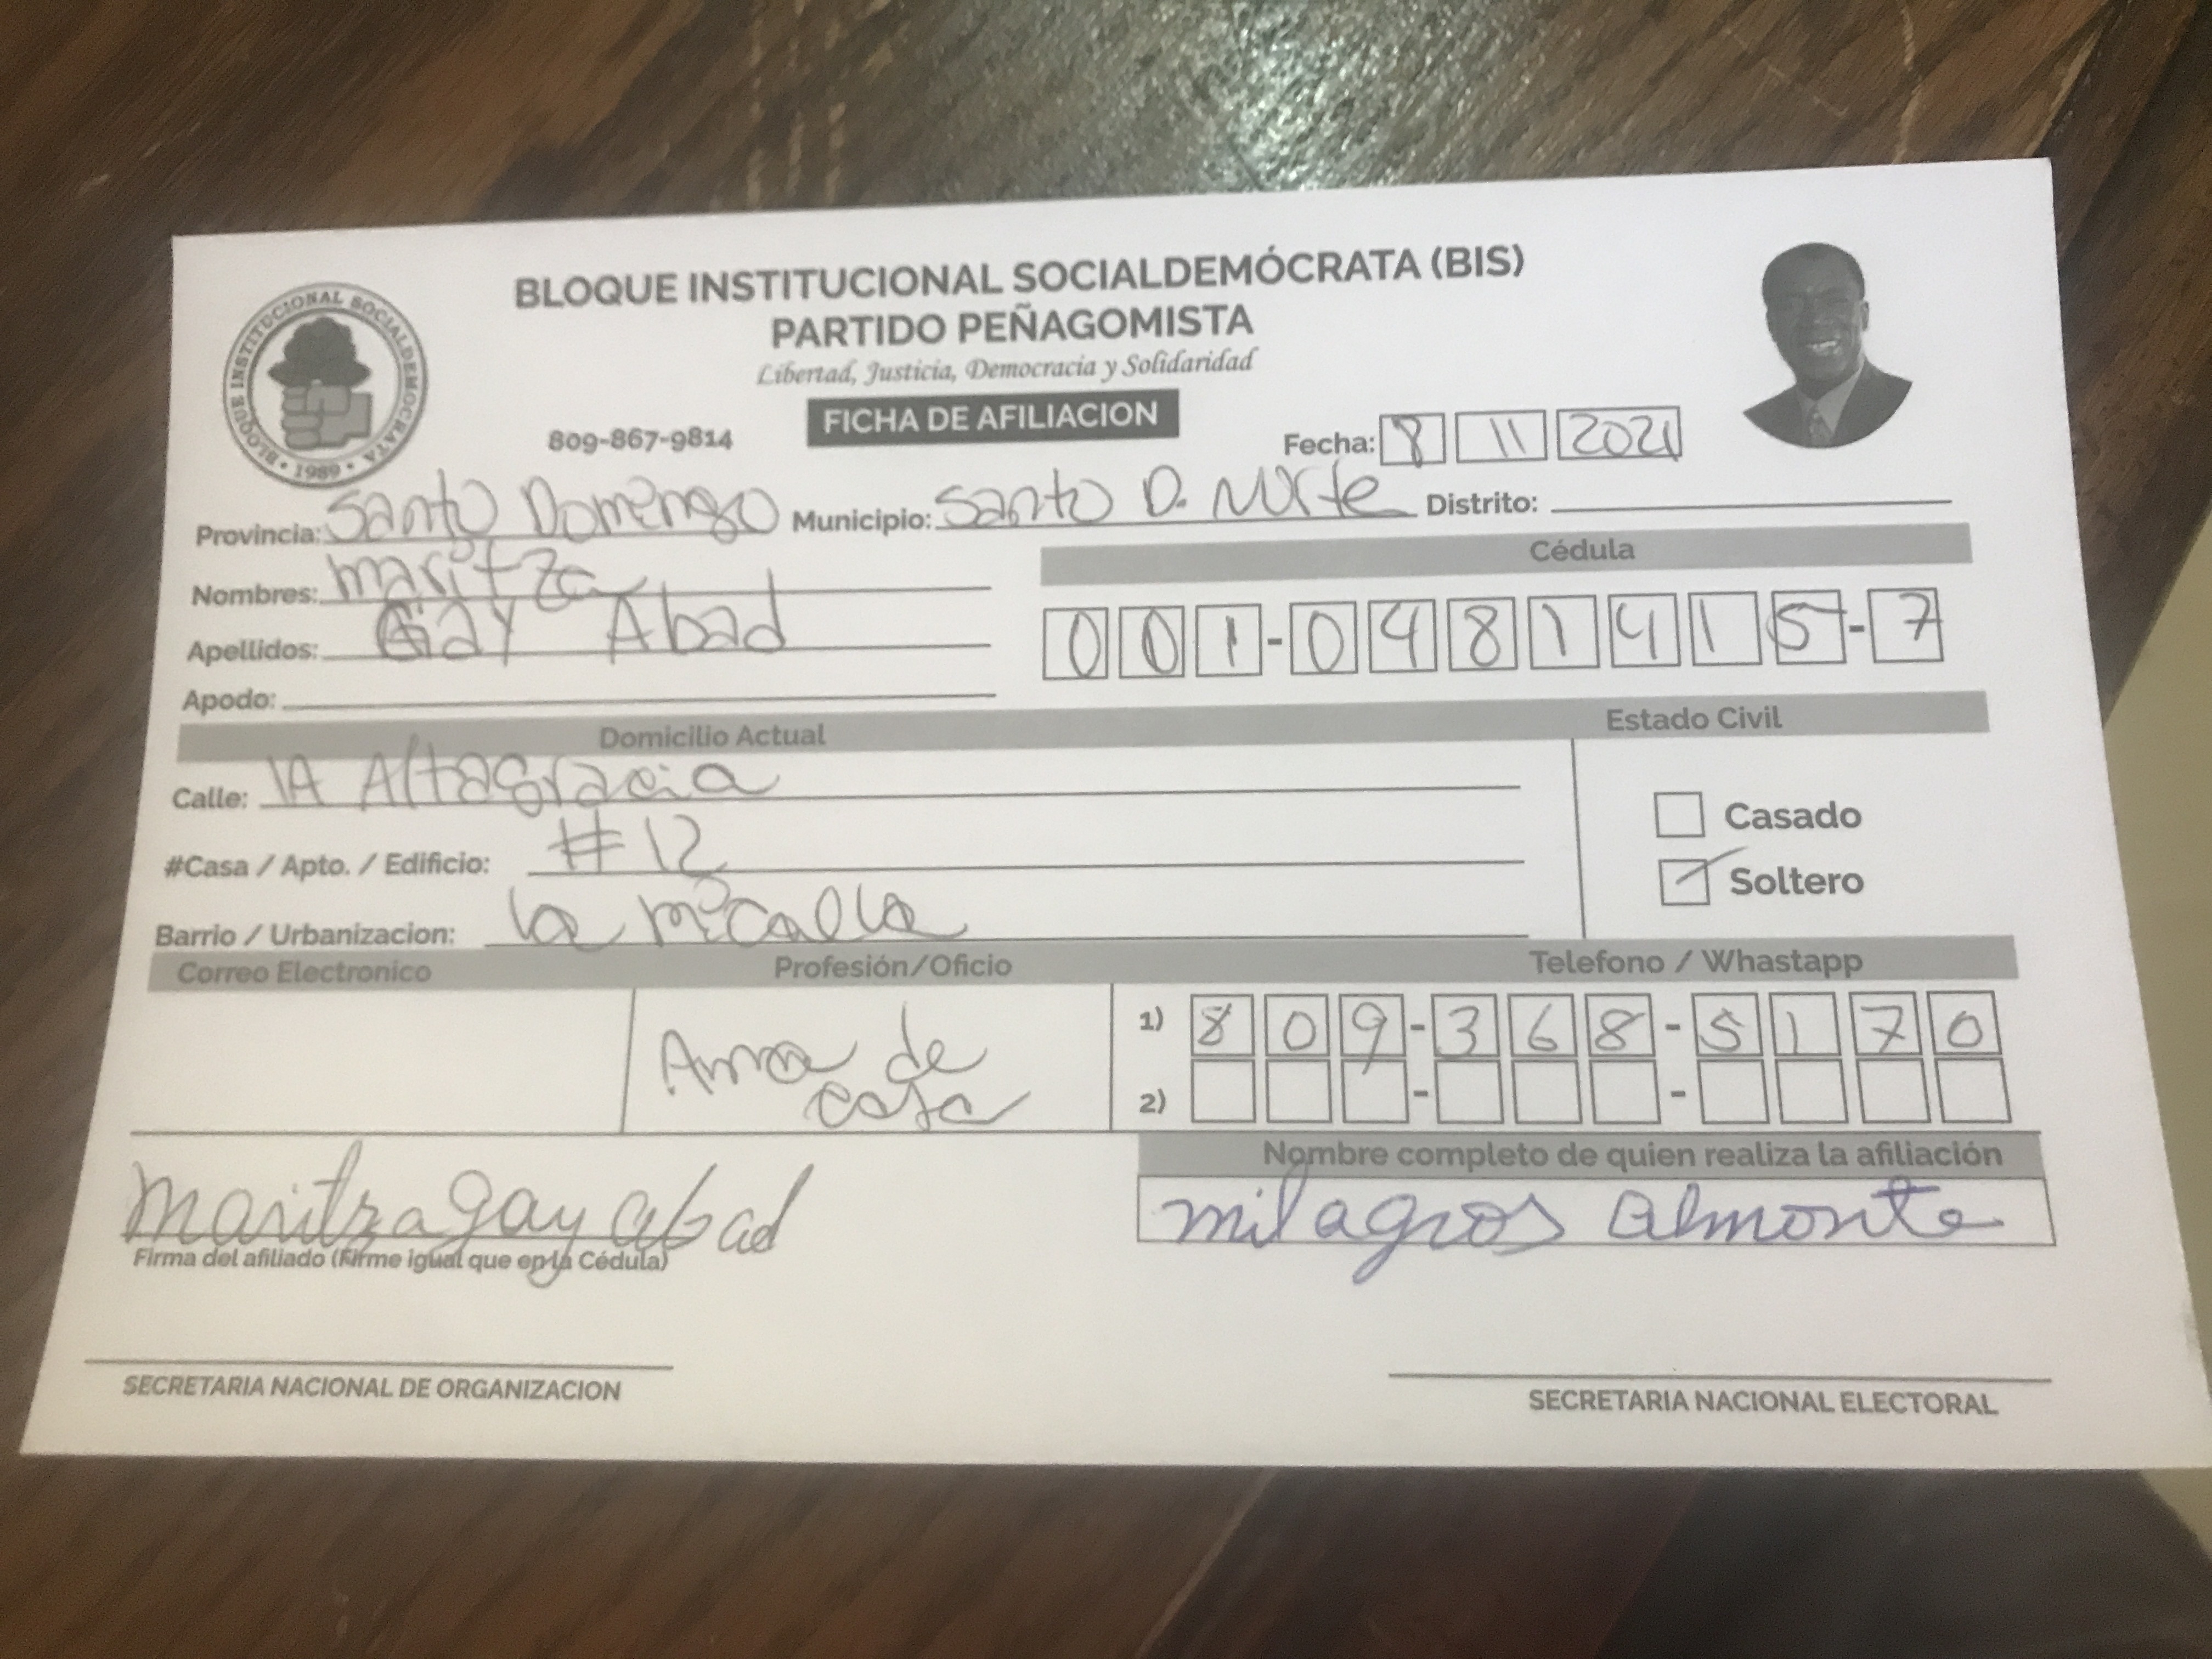 BLOQUE INSTITUCIONAL SOCIALDEMÓCRATA (BIS)
PARTIDO PEÑAGOMISTA
Libertad, Justicia, Democracia y Solidaridad
BLOQUE INSTITUCIONAL SOCIALDEMOCRATA • 1989 •
809-867-9814 FICHA DE AFILIACION Fecha: 8 11 2021
Provincia: Santo Domingo Municipio: Santo D. Norte Distrito:
Nombres: maritza
Cédula
Apellidos: Gay Abad
001-0481415-7
Apodo:
Domicilio Actual
Estado Civil
Calle: lA Altagracia
Casado
#Casa / Apto. / Edificio: #12
Soltero
Barrio / Urbanizacion: la
Correo Electronico Profesión/Oficio Telefono / Whastapp
Ama de casa
1) 809-368-5170
2) - -
maritza gay abad
Firma del afiliado (Firme igual que en la Cédula)
Nombre completo de quien realiza la afiliación
milagros almonte
SECRETARIA NACIONAL DE ORGANIZACION
SECRETARIA NACIONAL ELECTORAL